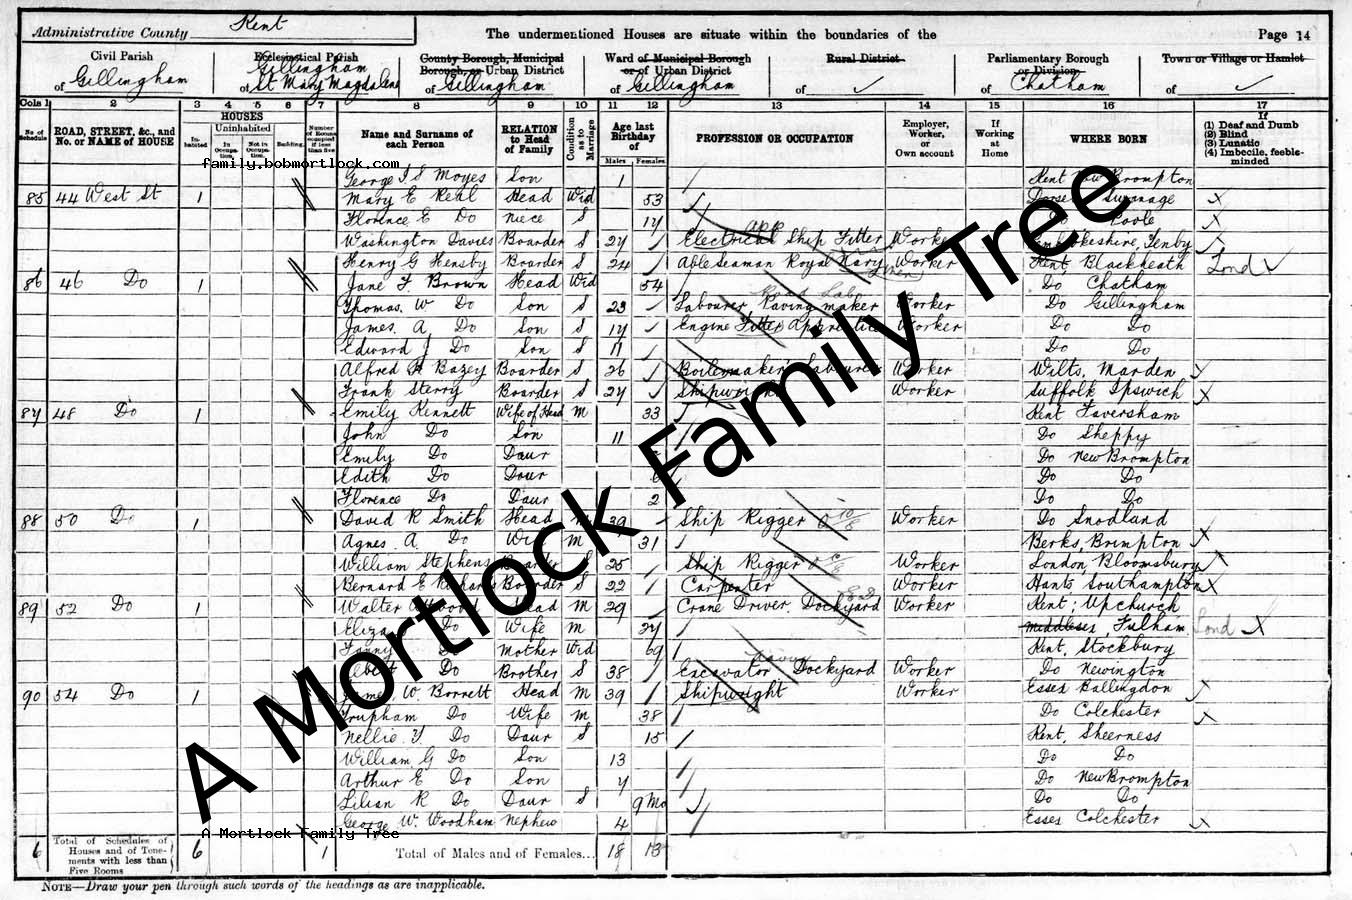 Administrative County Kent
The undermentioned Houses are situate within the boundaries of the
Page 14
Civil Parish of Gillingham
Ecclesiastical Parish of Gillingham St Mary Magdalene
County Borough, Municipal Borough, or Urban District of Gillingham
Ward of Municipal Borough or of Urban District of Gillingham
Rural District of
Parliamentary Borough or Division of Chatham
Town or Village or Hamlet of
Cols 1 2 3 4 5 6 7 8 9 10 11 12 13 14 15 16 17
No. of Schedule
ROAD, STREET, &c., and No. or NAME of HOUSE
HOUSES
Inhabited
Uninhabited
In Occupation
Not in Occupation
Building
Number of Rooms occupied if less than five
Name and Surname of each Person
RELATION to Head of Family
Condition as to Marriage
Age last Birthday of
Males Females
PROFESSION OR OCCUPATION
Employer, Worker, or Own account
If Working at Home
WHERE BORN
If (1) Deaf and Dumb (2) Blind (3) Lunatic (4) Imbecile, feeble-minded
family.bobmortlock.com
George J S Moyes Son 1 Kent New Brompton
85 44 West St 1 Mary E Kehl Head Wid 53
Florence E Do niece S 17 Poole
Washington Davies Boarder S 27 Electrical app Ship Fitter Worker Pembrokeshire, Tenby
Henry G Hensby Boarder S 24 Able Seaman Royal Navy Worker Kent Blackheath Lond
86 46 Do 1 Jane F Brown Head Wid 54 Do Chatham
Thomas W Do Son S 23 Labourer, Paving maker Worker Do Gillingham
James A Do Son S 17 Engine Fitter Apprentice Worker Do Do
Edward J Do Son S 11 Do Do
Alfred Bazey Boarder S 26 Boilermaker's Labourer Worker Wilts, Marden
Frank Sterry Boarder S 27 Shipwright Worker Suffolk Ipswich
87 48 Do 1 Emily Kennett Wife of Head M 33 Kent Faversham
John Do Son 11 Do Sheppy
Emily Do Daur Do New Brompton
Edith Do Daur Do Do
Florence Do Daur 2 Do Do
88 50 Do 1 David R Smith Head M 39 Ship Rigger Worker Do Snodland
Agnes A Do Wife M 31 Berks, Brimpton
William Stephens Boarder S 25 Ship Rigger Worker London Bloomsbury
Bernard E Boarder S 22 Carpenter Worker Hants Southampton
89 52 Do 1 Walter Head M 29 Crane Driver, Dockyard Worker Kent, Upchurch
Eliza Do Wife M 27 Middlesex, Fulham Lond
Fanny Do Mother Wid 69 Kent, Stockbury
Albert Do Brother S 38 Excavator Dockyard Worker Do Newington
90 54 Do 1 James W. Borrett Head M 39 Shipwright Worker Essex Ballingdon
Do Wife M 38 Do Colchester
Nellie Do Daur S 15 Kent, Sheerness
William G Do Son 13 Do Do
Arthur E Do Son 7 Do New Brompton
Lilian R Do Daur S 9 Mo Do Do
George W. Woodham Nephew 4 Essex Colchester
A Mortlock Family Tree
6 Total of Schedules of Houses and of Tenements with less than Five Rooms 6 1 Total of Males and of Females... 18 13
NOTE—Draw your pen through such words of the headings as are inapplicable.
A Mortlock Family Tree